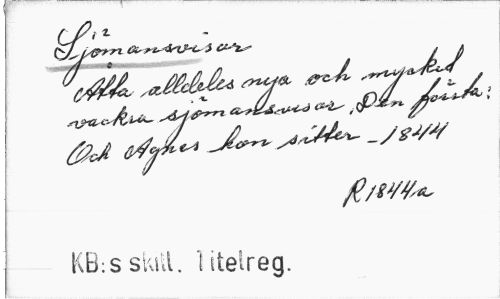 Sjömansvisor
Åtta alldeles nya och mycket
vackra sjömansvisor. Den första:
Och Agnes hon sitter - 1844
R 1844 a
KB:s skill. Titelreg.